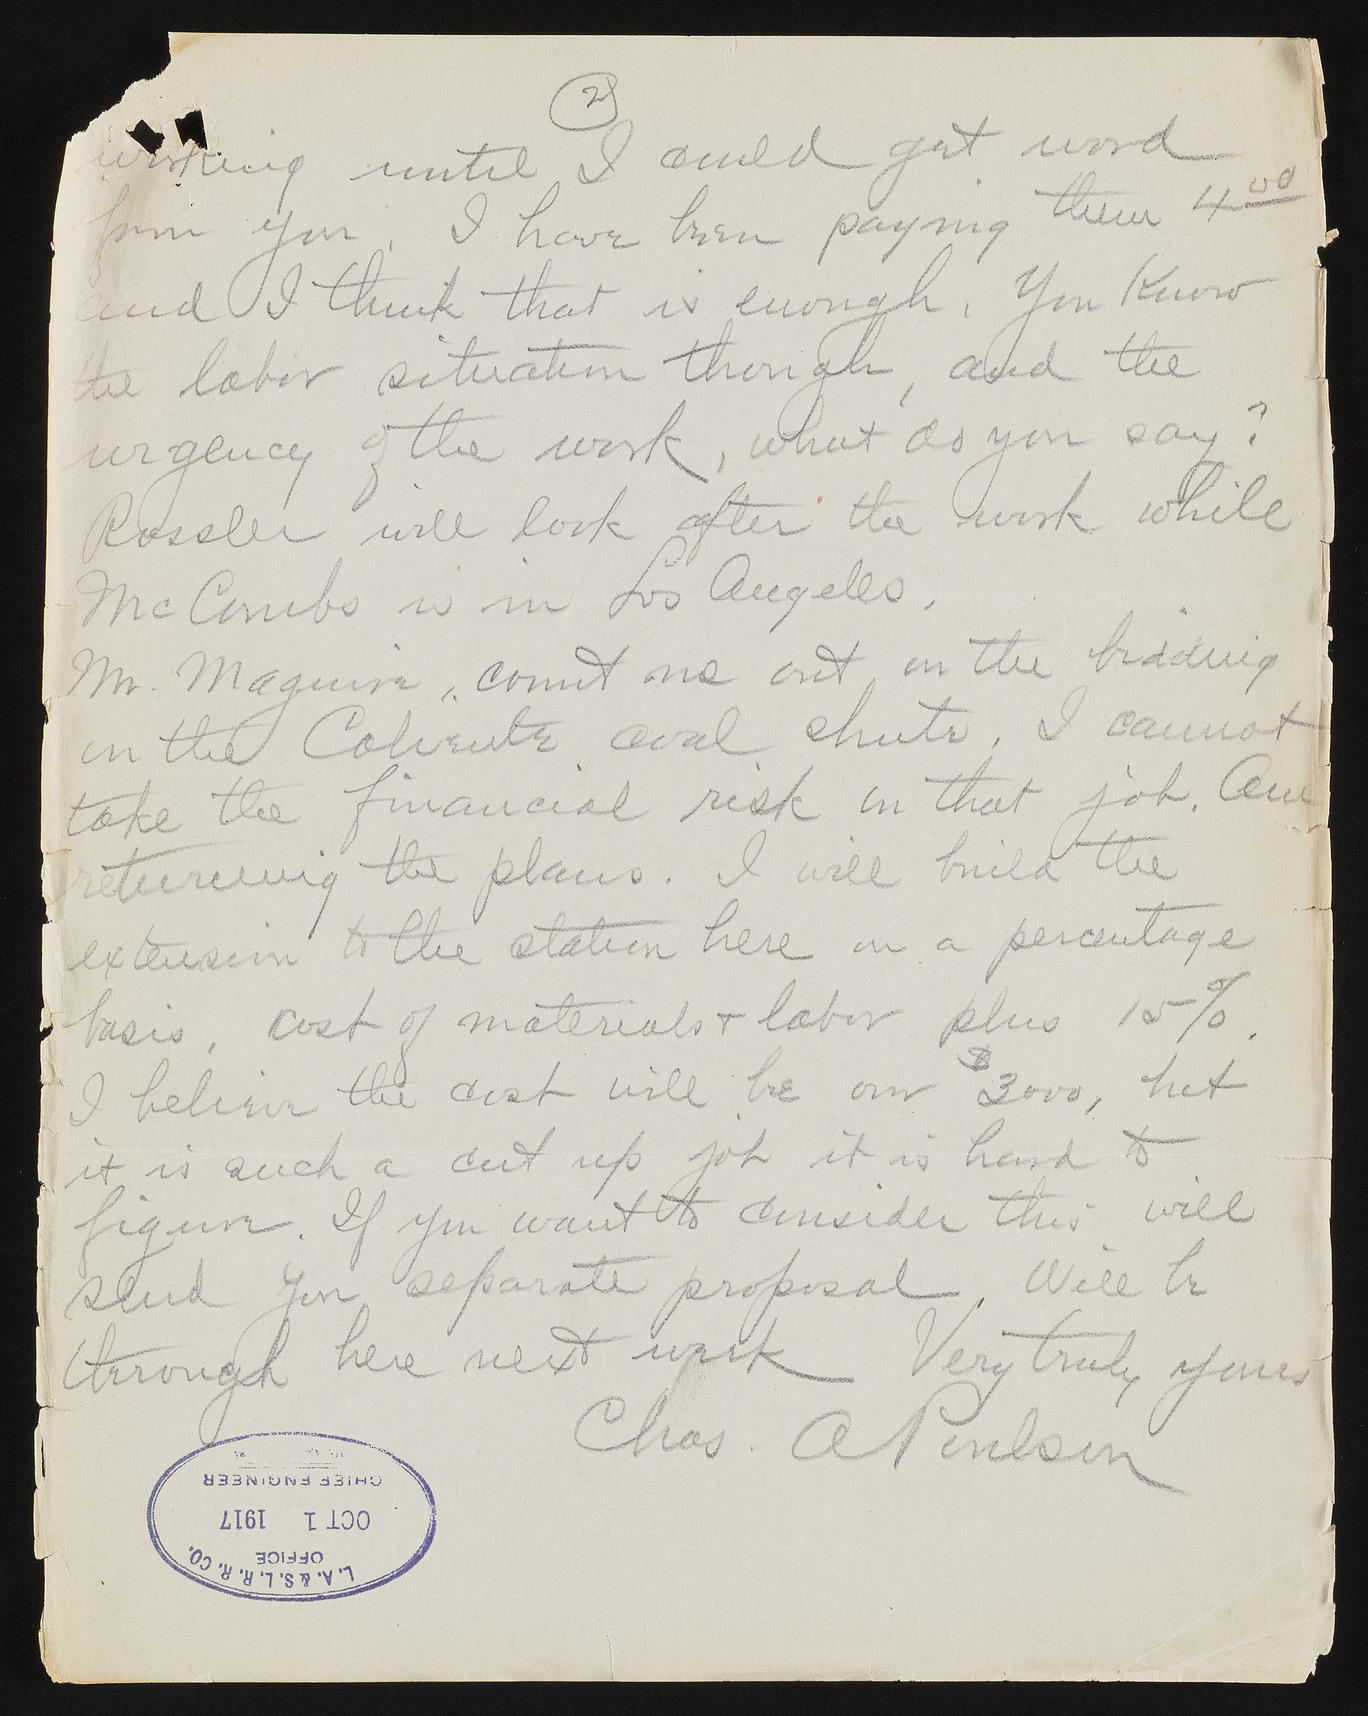 2
working until I could get word
from you. I have been paying them 4 00
and I think that is enough. You know
the labor situation though, and the
urgency of the work, what do you say?
Rossler will look after the work while
McCombs is in Los Angeles.
Mr. Maguire, count me out on the bidding
on the Caliente coal shute. I cannot
take the financial risk on that job. Am
returning the plans. I will build the
extension to the station here on a percentage
basis, cost of materials + labor plus 15%.
I believe the cost will be over $3000, but
it is such a cut up job it is hard to
figure. If you want to consider this will
send you separate proposal. Will be
through here next week Very truly yours
Chas. A Poulsen
L.A. & S.L. R.R. CO.
OFFICE
OCT 1 1917
CHIEF ENGINEER